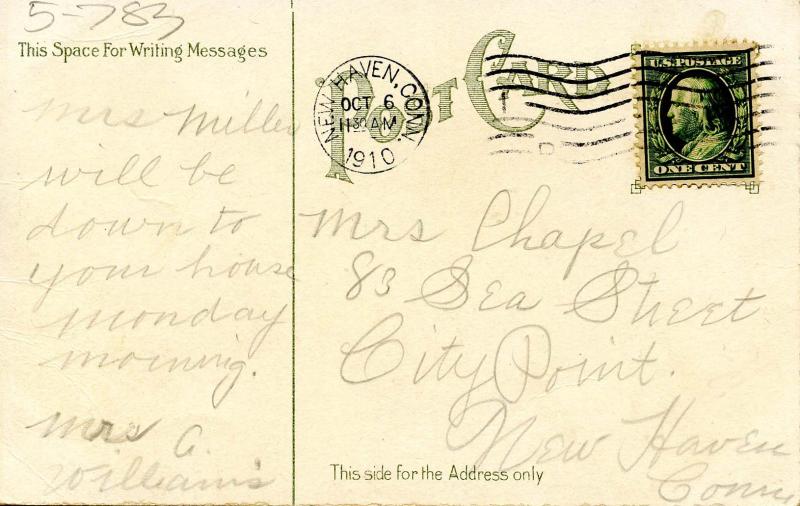 5-783
This Space For Writing Messages
Mrs Miller
will be
down to
your house
monday
morning.
Mrs A.
Williams
POST CARD
NEW HAVEN, CONN.
OCT 6
11 30 AM
1910
U.S. POSTAGE
ONE CENT
Mrs Chapel
83 Sea Street
City Point.
New Haven
Conn
This side for the Address only